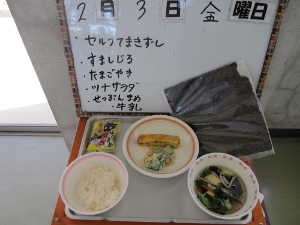 2月3日金曜日
・セルフてまきずし
・すましじる
・たまごやき
・ツナサラダ
・せつぶんまめ
・牛乳